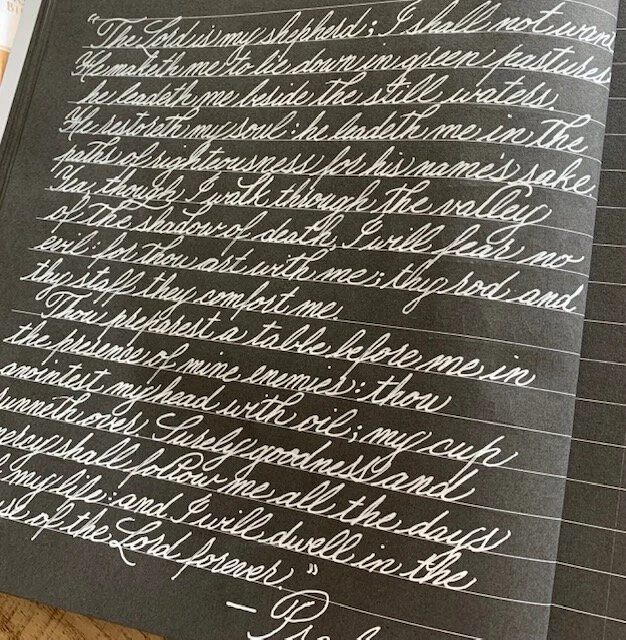 "The Lord is my shepherd; I shall not want
He maketh me to lie down in green pastures
he leadeth me beside the still waters.
He restoreth my soul: he leadeth me in the
paths of rightiousness for his name's sake.
Yea, though I walk through the valley
of the shadow of death, I will fear no
evil: for thou art with me; thy rod and
thy staff they comfort me.
Thou preparest a table before me in
the presense of mine enemies: thou
anointest my head with oil; my cup
runneth over. Surely goodness and
mercy shall follow me all the days
my life: and I will dwell in the
of the Lord forever."